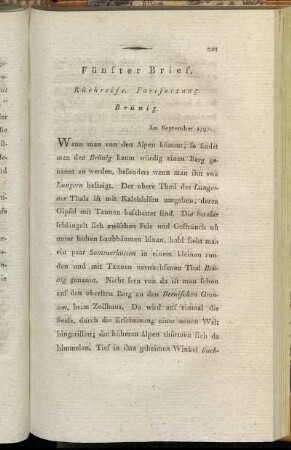 221
Fünfter Brief.
Rückreise. Fortsetzung.
Brünig.
Im September 1791.
Wenn man von den Alpen kömmt, so findet
man den Brünig kaum würdig einen Berg ge-
nannt zu werden, besonders wenn man ihn von
Lungern besteigt. Der obere Theil des Lunger-
ner Thals ist mit Kalchfelsen umgeben, deren
Gipfel mit Tannen beschattet sind. Die Strasse
schlängelt sich zwischen Fels und Gesträuch oft
unter hohen Laubbäumen hinan, bald sieht man
ein paar Sommerhütten in einem kleinen run-
den und mit Tannen umwachsenen Thal Brü-
nig genannt. Nicht fern von da ist man schon
auf den obersten Berg an den Bernischen Gren-
zen, beim Zollhaus. Da wird auf einmal die
Seele, durch die Erscheinung einer neuen Welt
hingerissen; die höheren Alpen thürmen sich da
himmelan. Tief in ihre geheimen Winkel buch-